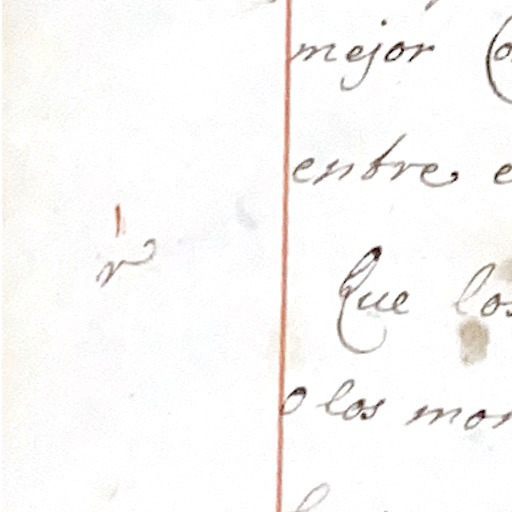 mejor
entre e
Que los
o los mon